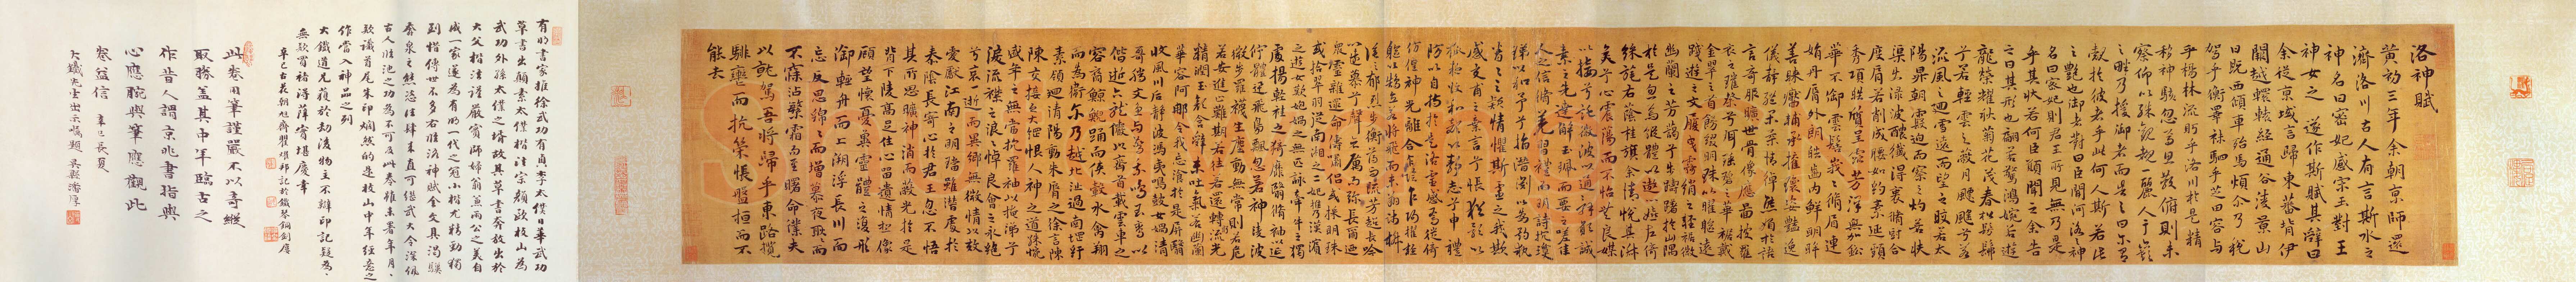 洛神賦
黄初三年余朝京師還
濟洛川古人有言斯水之
神名曰宓妃感宗玉對王
神女之遂作斯賦其辭曰
余從京域言歸東藩背伊
闕越轘轅經通谷陵景山
日既西傾車殆馬煩尒乃稅
駕乎衡睪秣駟乎芝田容与
乎楊林流眄乎洛川於是精
移神駭忽焉思散俯則未
察仰以殊觀覩一麗人于巖
之畔
覿於彼者乎此何人斯若此
之艷也御者對曰臣聞河洛之神
名曰宓妃則君王所見無乃是
乎其狀若何臣願聞之余告
之曰其形也翩若驚鴻婉若遊
龍榮耀秋菊花茂春松髣髴
兮若輕雲之蔽月飄颻兮若
流風之迴雪遠而望之皎若太
陽昇朝霞迫而察之灼若芙
蕖出淥波穠纖得衷脩短合
度肩若削成腰如約素延頸
秀項皓質呈露芳澤無加鉛
華不御雲髻峩峩脩眉連
娟丹脣外朗皓齒內鮮明眸
善睞靨輔承權瓌姿豔逸
儀靜體閑柔情綽態媚於語
言奇服曠世骨像應圖披羅
衣之璀粲兮珥瑤碧之華裾戴
金翠之首飾綴明珠以耀軀踐遠
遊之文履曳霧綃之輕裾微
幽蘭之芳藹兮步踟躕於山隅
於是忽焉縱體以遨以嬉左倚
綵旄右蔭桂旗余情悅其淑
美兮心震蕩而不怡無良媒
以接兮託微波以通辭願誠
素之先達解玉珮而要之嗟佳
人之信脩羌習禮而明詩抗瓊
珶以和予兮指潛淵以為期執
眷眷之款情懼斯靈之我欺
感交甫之棄言兮悵猶豫以
狐疑收和顏以靜志兮申禮
防以自持於是洛靈感焉徙倚
仿偟神光離合乍陰乍陽擢輕
軀以鶴立若將飛而未翔踐椒
塗之郁烈步衡薄而流芳超長吟
以慕兮聲哀厲而彌長爾迺
衆靈雜遝命儔嘯侶或採明珠
或拾翠羽從南湘之二妃攜乃漢濱
之遊女歎匏媧之無匹詠牽牛之獨
處揚輕袿之猗靡翳脩袖以延
佇體迅飛鳧飄忽若神凌波
微步羅襪生塵動無常則若危
若安進止難期若往若還轉流光
精潤玉顏含辭未吐氣若幽蘭
華容阿那令我忘飡於是屏翳
收風川后靜波馮夷鳴鼓女媧清
哥騰文魚以鳴玉鸞以
偕逝六龍儼以齊首載雲車之
容裔鯨鯢踊而俠轂水禽翔
而為衛尒乃越北沚過南岡紆
素領迴清陽動朱脣之徐言陳
陳交接之大綱恨人神之道殊怨
盛年之無當抗羅袖以掩涕兮
淚流襟之浪浪悼良會之永絕
兮哀一逝而異鄉無微情以效
愛獻江南之明璫雖潛處於
泰陰長寄心於君王忽不悟
其所思曠神消而蔽光於是
背下陵高足住心留遺情想像
顧望懷憂冀靈體之復形
御輕舟而上溯浮長川而
忘反思綿綿而增慕夜耿而
不寐沾繁霜而至曙命僕夫
以就駕吾將歸乎東路攬
騑轡而抗策悵盤桓而不
能去
有明書家推徐武功有貞李太僕日華武功
草書出顛素太僕楷法宗顏歐枝山為
武功外孫太僕之壻故其草書奔放出於
大父楷法謹嚴實師婦翁兼兩公之美自
成一家遂為有明一代之冠小楷尤精勁獨
到楷傳世不多若此洛神賦全文具渴驥
奔泉之熊恣佳肆未直可儷武大令深佩
古人臨池之功為不可及此卷雖未署年月
款識首尾朱印爛然的是枝山中年經意之
作當入神品之列
大鐵道兄獲於劫後物主不辯印記疑為
無款習褚淂薛實堪慶幸
辛巳古莫朝旭齋瞿翊邦記於鐵琴銅劍廔
此卷用筆謹嚴不以奇縱
取勝蓋其中年臨古之
作昔人謂京兆書指與
心應腕與筆應觀此
卷益信 辛巳長夏
大鐵先生出示囑題 吳縣潘厚